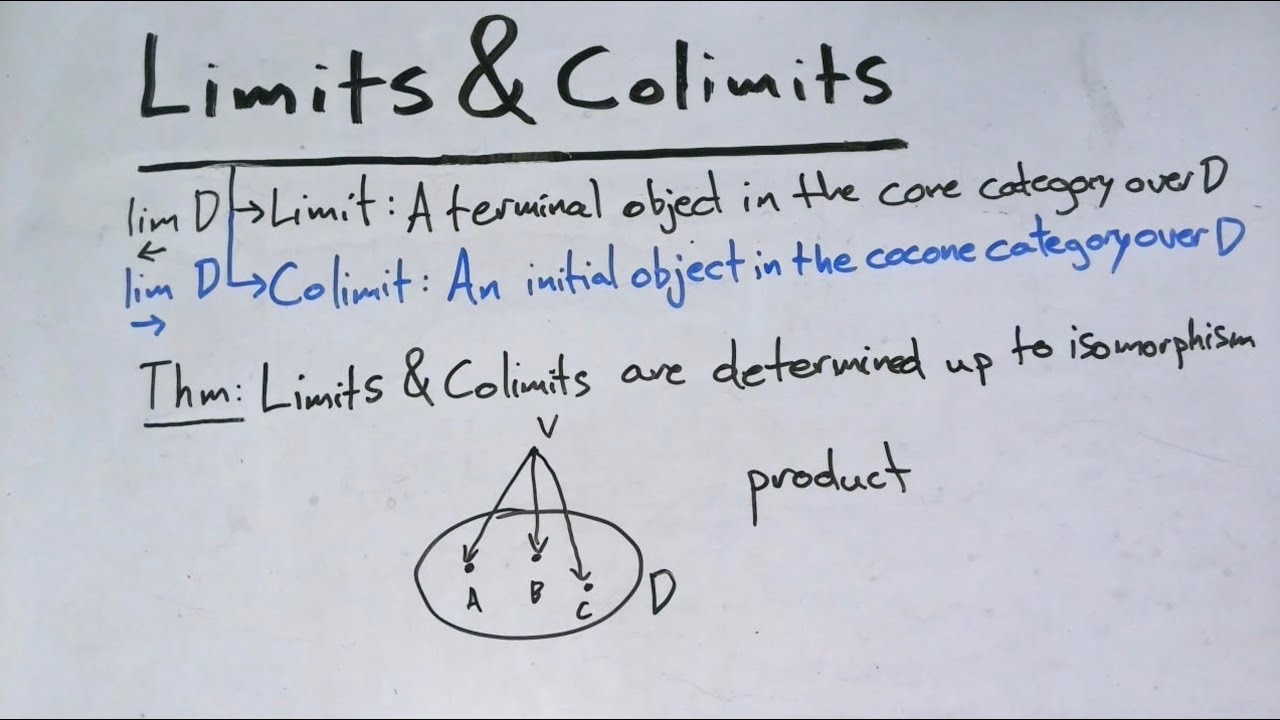 Limits & Colimits
lim D → Limit: A terminal object in the cone category over D
←
lim D → Colimit: An initial object in the cocone category over D
→
Thm: Limits & Colimits are determined up to isomorphism
V
product
A B C D